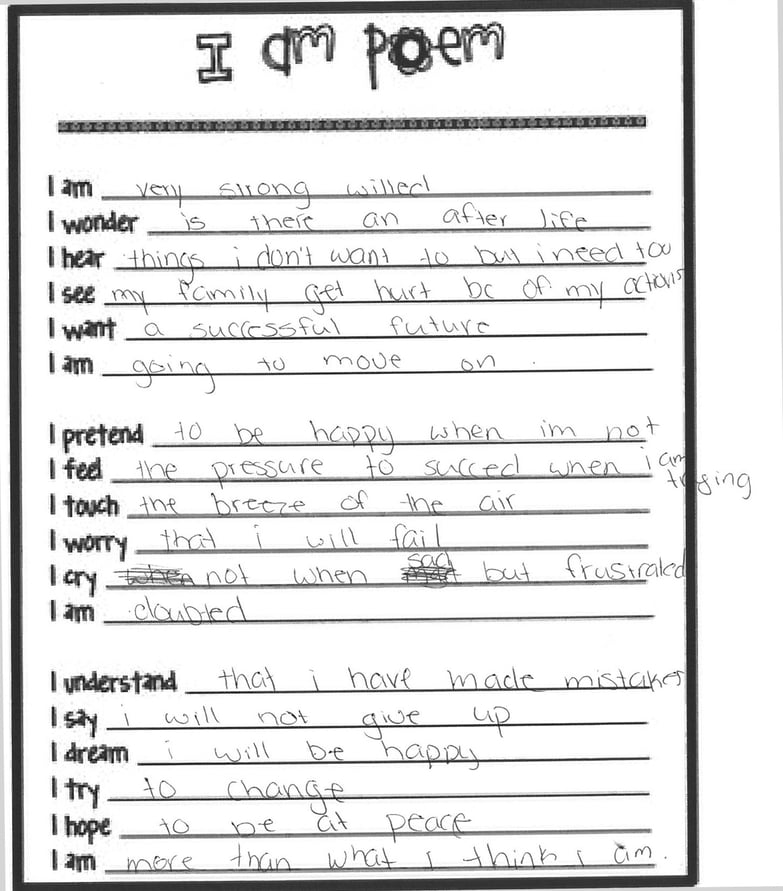 I am poem
I am very strong willed
I wonder is there an after life
I hear things i don't want to but i need too
I see my family get hurt bc of my actions
I want a successful future
I am going to move on.
I pretend to be happy when im not
I feel the pressure to succed when i am
trying
I touch the breeze of the air
I worry that i will fail
I cry not when sad but frustrated
I am doubted
I understand that i have made mistakes
I say i will not give up
I dream i will be happy
I try to change
I hope to be at peace
I am more than what i think i am.